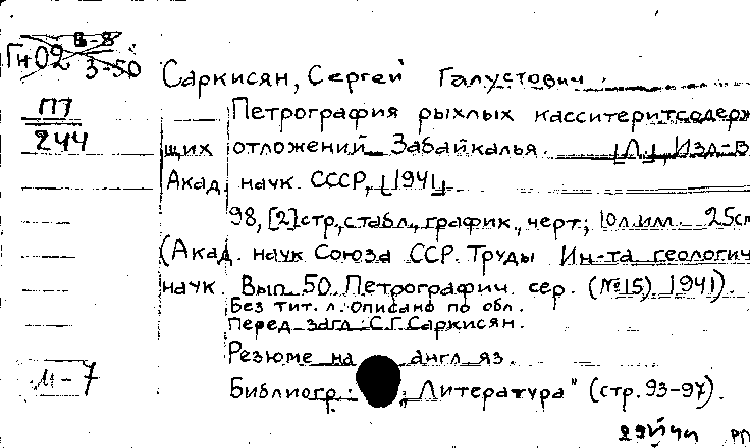 В-8
Гн02 3-50
Саркисян, Сергей Галустович.
П
244
Петрография рыхлых касситеритсодерж
щих отложений Забайкалья. [Л.], Изд-в
Акад. наук. СССР, [194]
98, [2] стр., с табл., график., черт.; 10 л. илл. 25 см
(Акад. наук Союза ССР. Труды Ин-та геологич
наук. Вып. 50. Петрографич. сер. (№15). 1941).
Без тит. л. Описано по обл.
Перед загл.: С.Г. Саркисян.
Резюме на англ. яз.
М-7
Библиогр.: „Литература" (стр. 93-97).